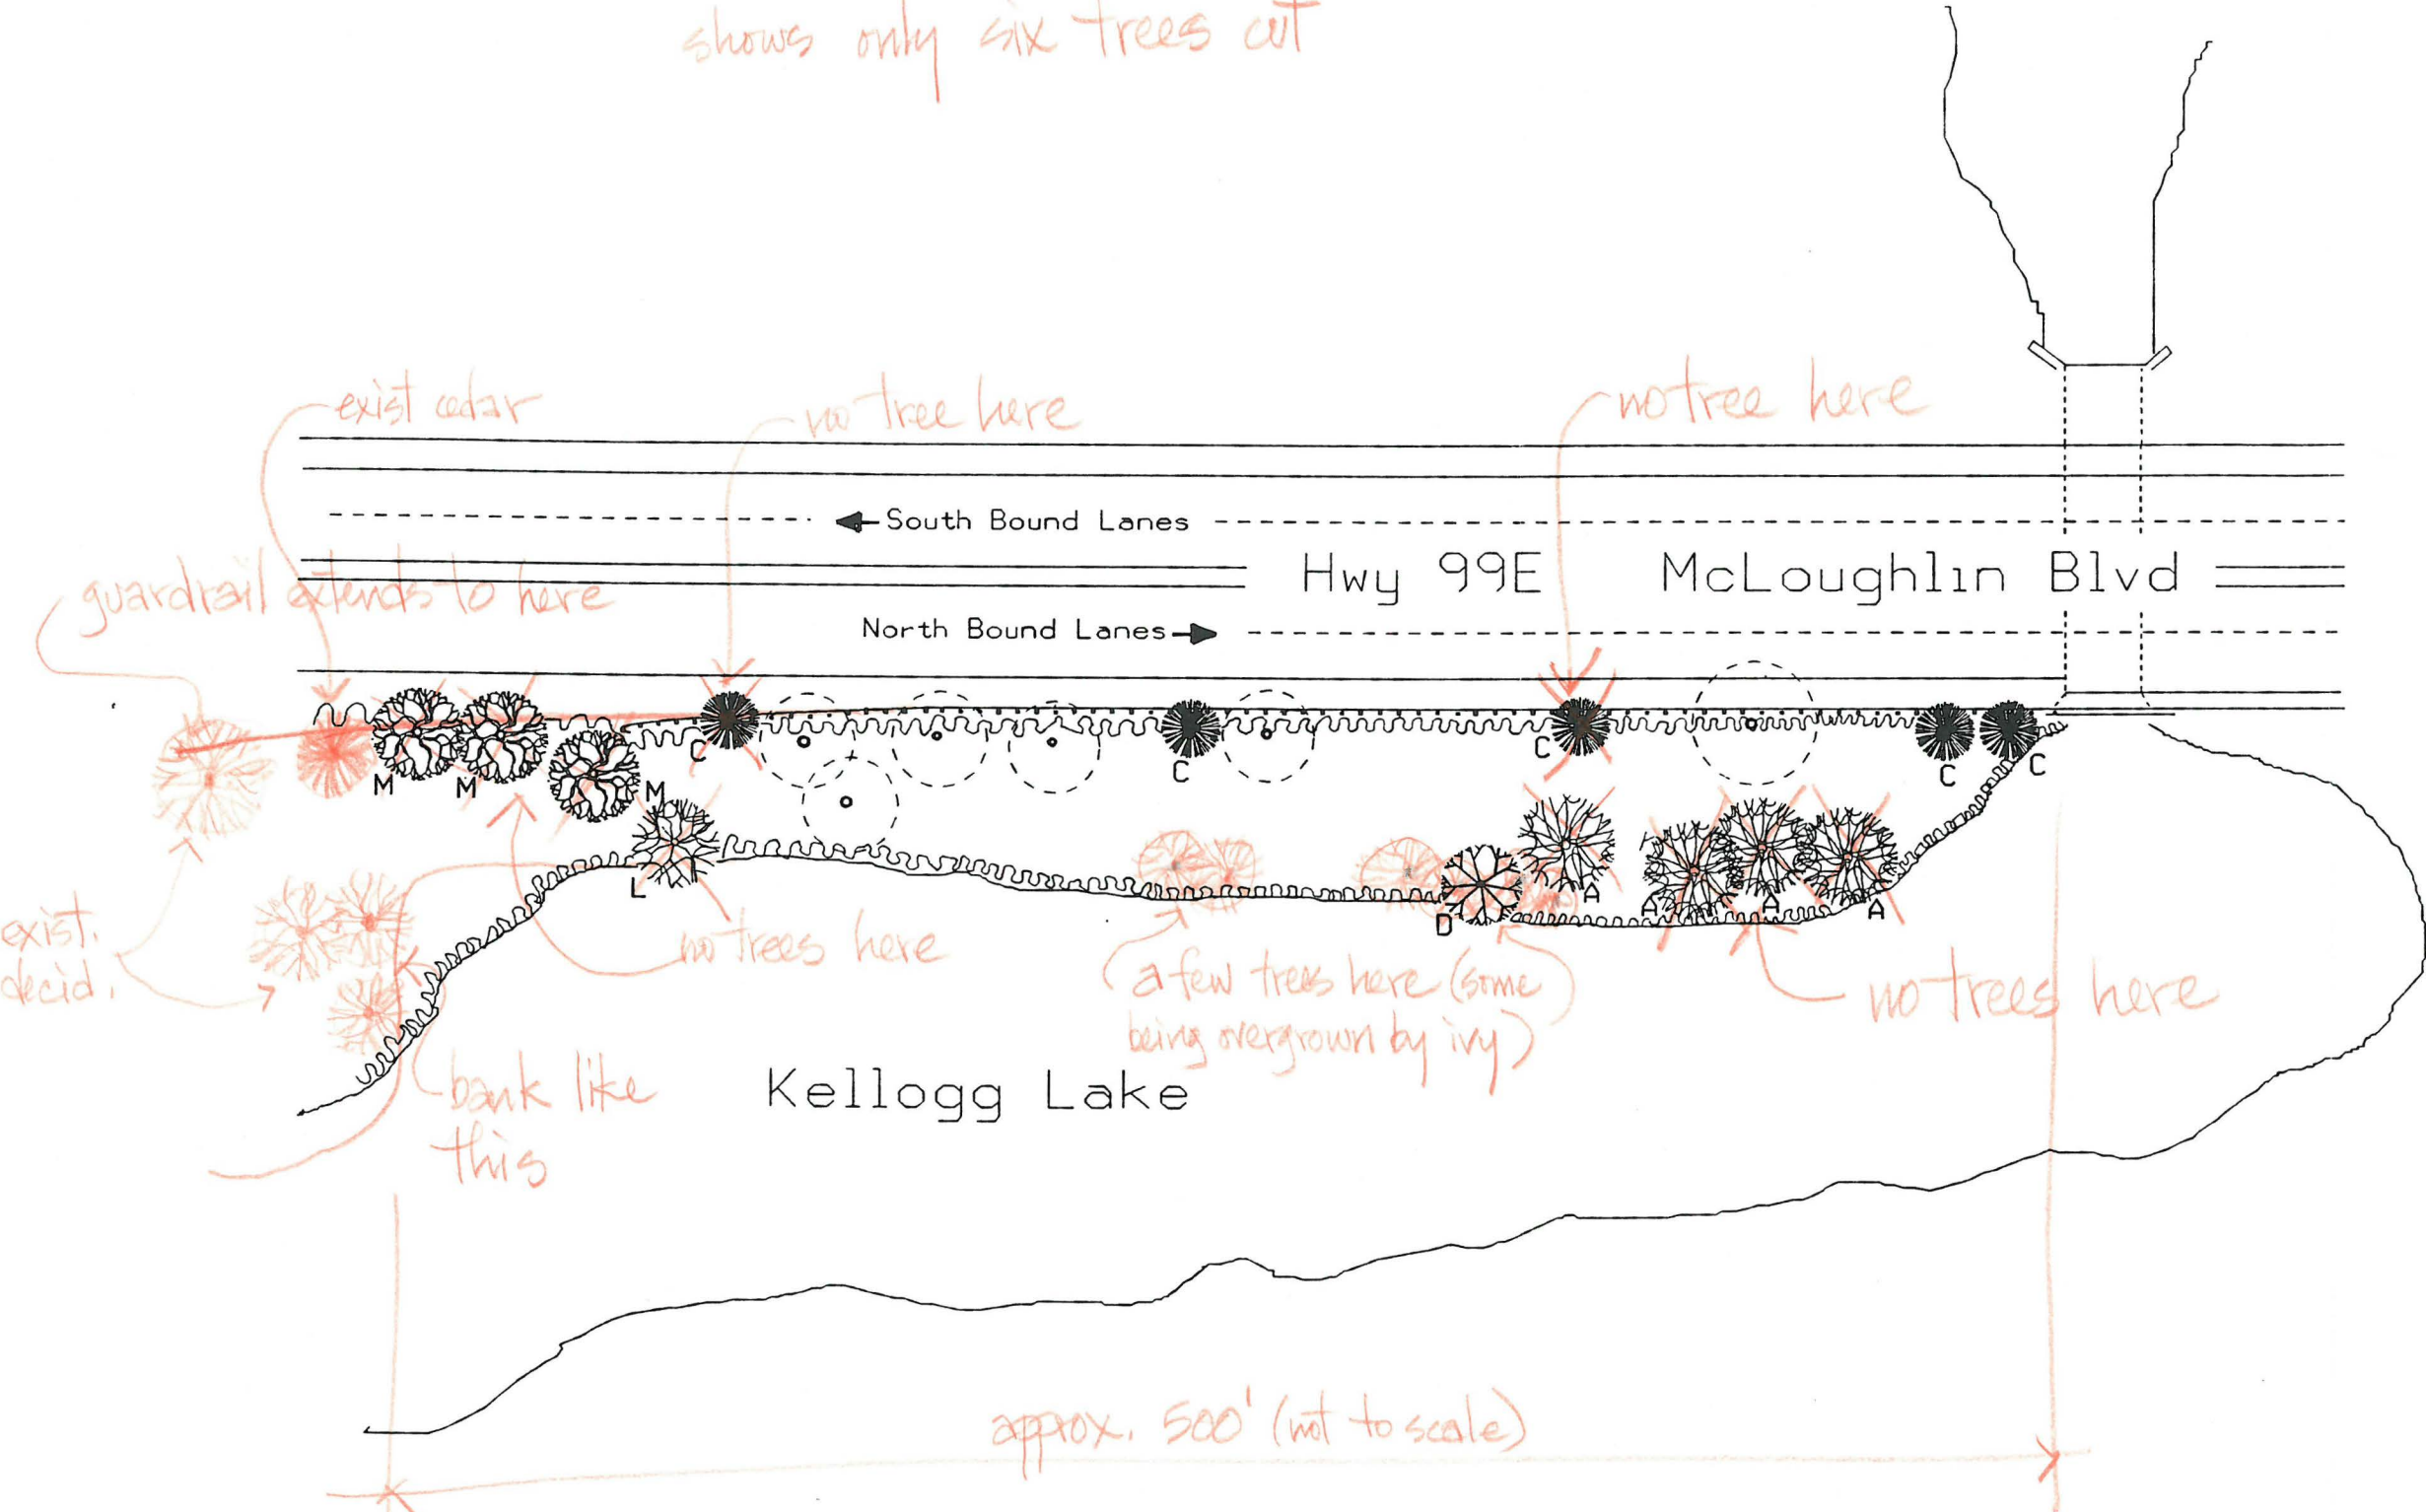 shows only six trees cut
exist cedar
no tree here
no tree here
South Bound Lanes
Hwy 99E McLoughlin Blvd
guardrail extends to here
North Bound Lanes
M
M
M
C
C
C
C
C
L
D
A
A
A
A
exist.
decid.
no trees here
a few trees here (some
being overgrown by ivy)
no trees here
bank like
this
Kellogg Lake
approx. 500' (not to scale)